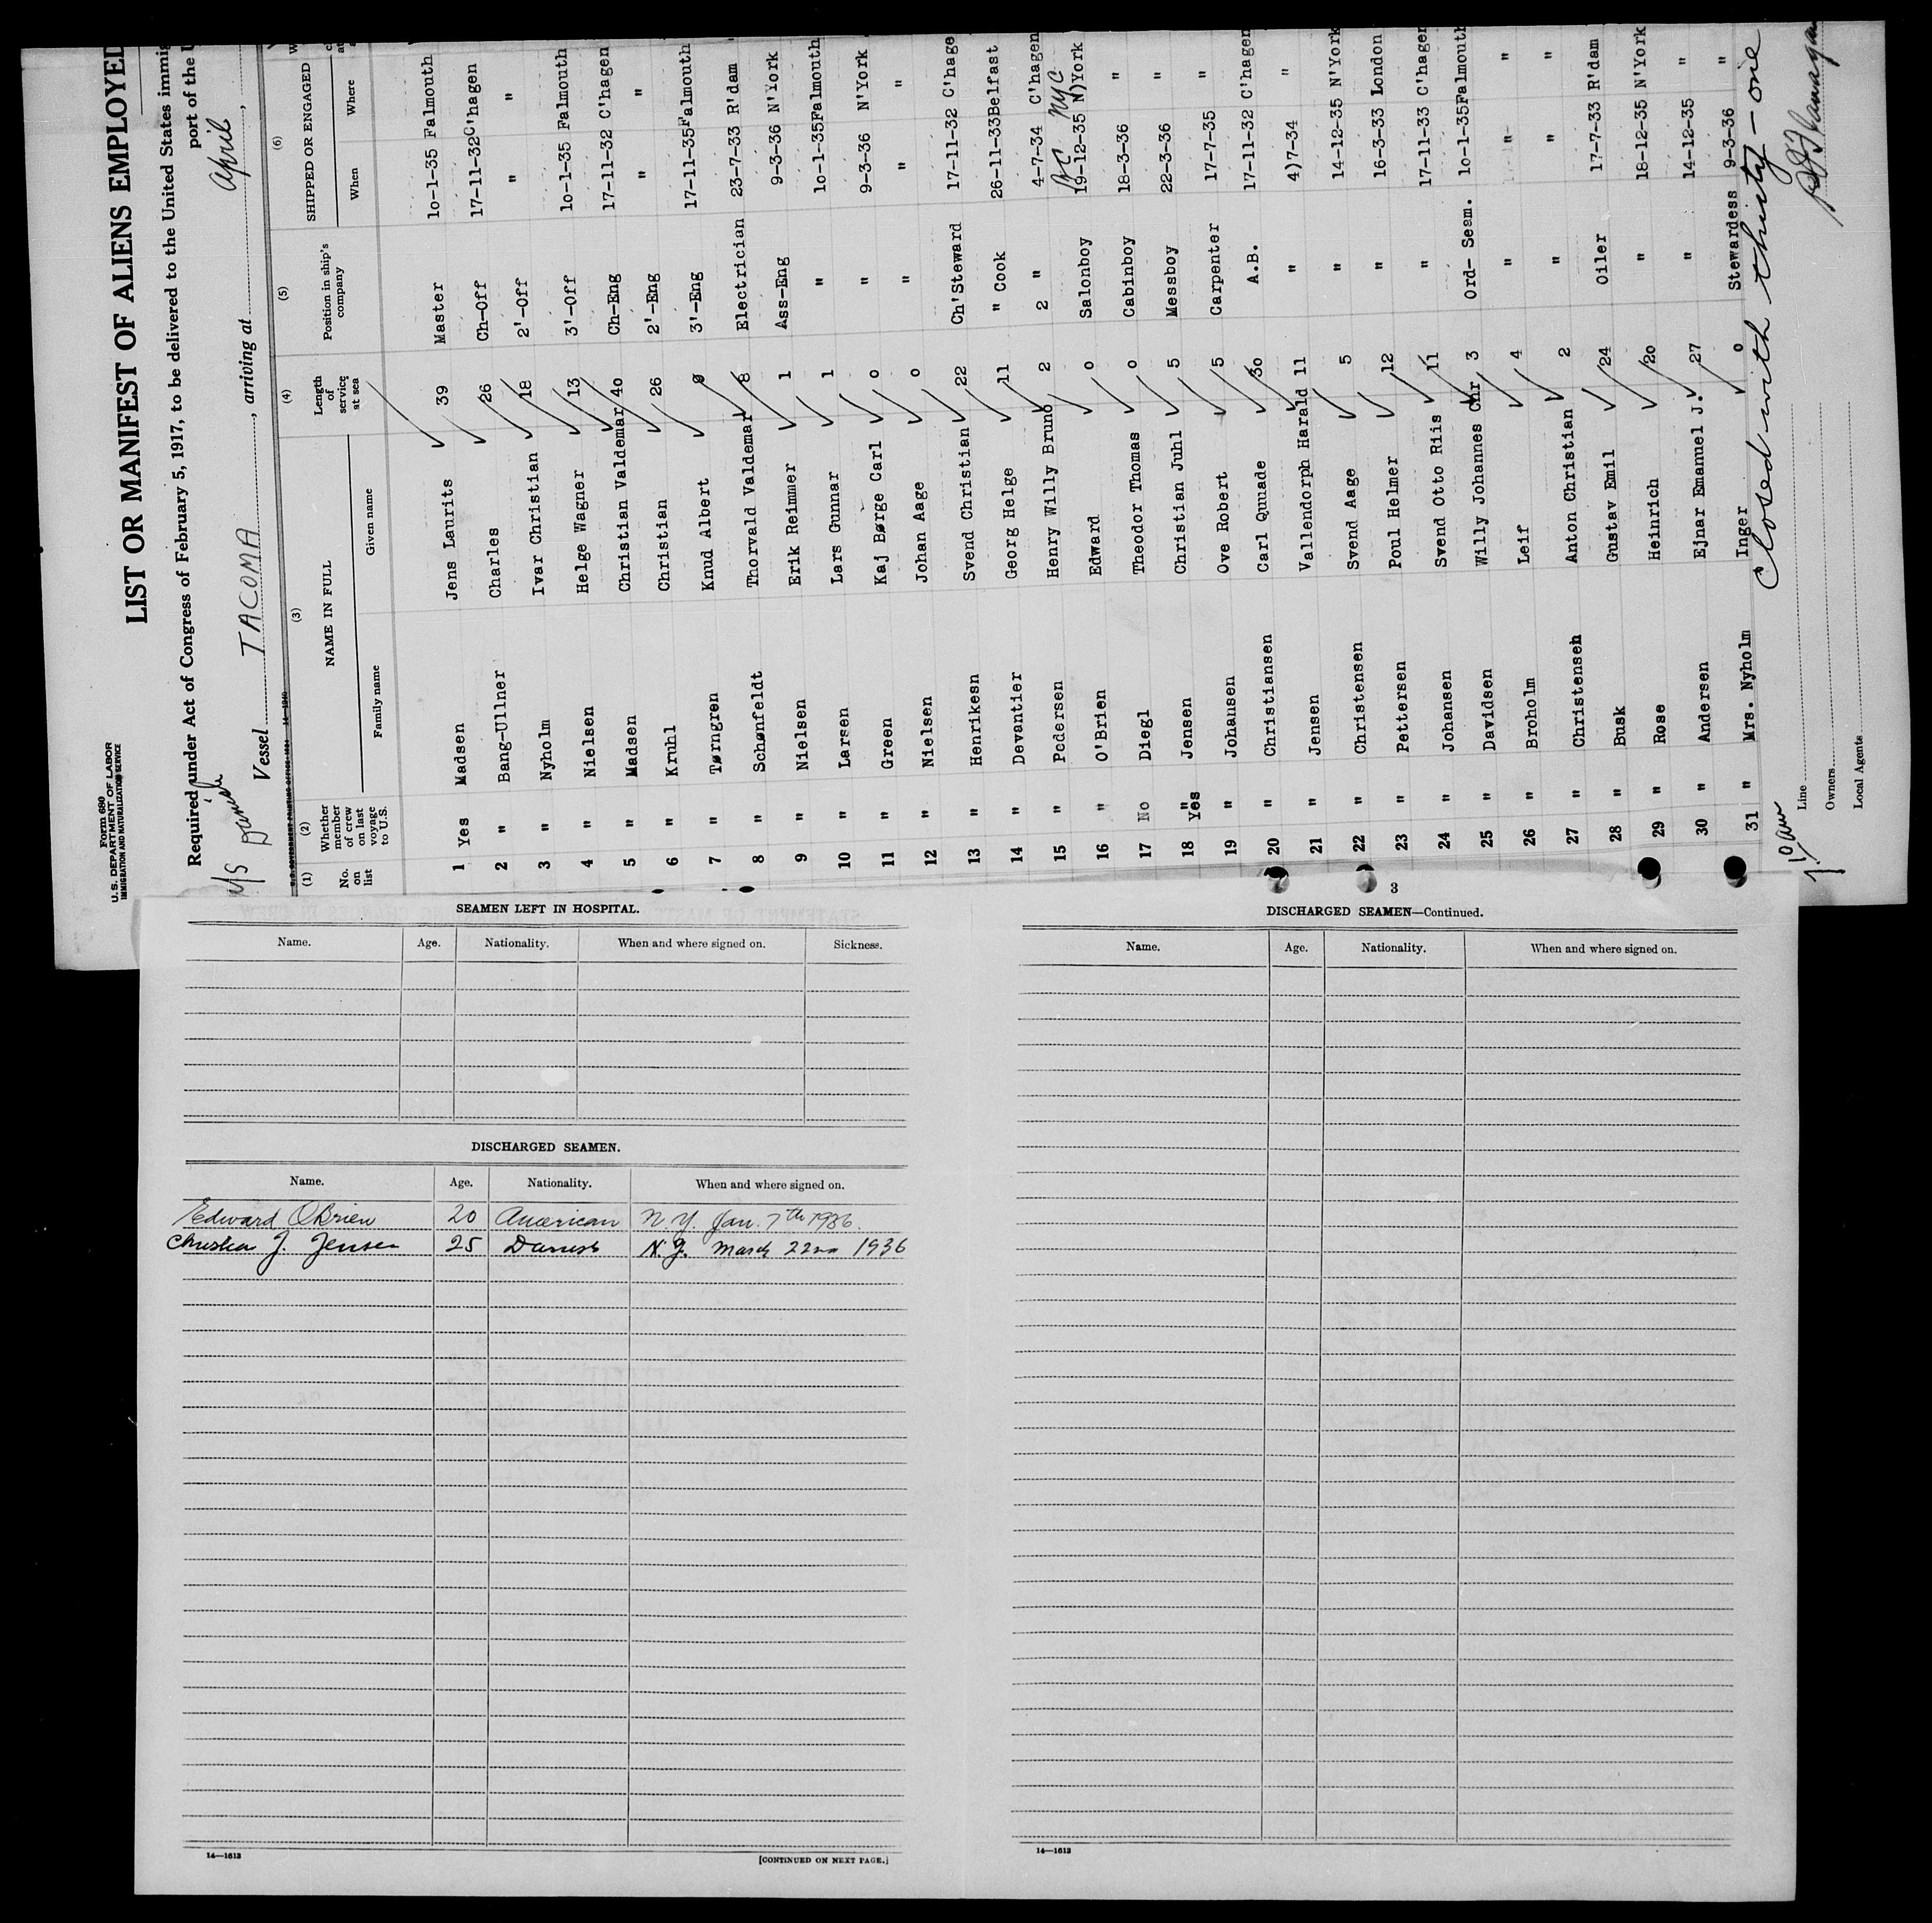 Form 680
U.S. DEPARTMENT OF LABOR
IMMIGRATION AND NATURALIZATION SERVICE
LIST OR MANIFEST OF ALIENS EMPLOYED
Required under Act of Congress of February 5, 1917, to be delivered to the United States immig
port of the U
M/S Danish
Vessel TACOMA, arriving at April,
(1) (2) (3) (4) (5) (6)
No. on list
Whether member of crew on last voyage to U.S.
NAME IN FULL
Family name Given name
Length of service at sea
Position in ship's company
SHIPPED OR ENGAGED
When Where
1 Yes Madsen Jens Laurits 39 Master 10-1-35 Falmouth
2 " Bang-Ullner Charles 26 Ch-Off 17-11-32 C'hagen
3 " Nyholm Ivar Christian 18 2'-Off " "
4 " Nielsen Helge Wagner 13 3'-Off 10-1-35 Falmouth
5 " Madsen Christian Valdemar 40 Ch-Eng 17-11-32 C'hagen
6 " Kruhl Christian 26 2'-Eng " "
7 " Tørngren Knud Albert 9 3'-Eng 17-11-35 Falmouth
8 " Schønfeldt Thorvald Valdemar 8 Electrician 23-7-33 R'dam
9 " Nielsen Erik Reimmer 1 Ass-Eng 9-3-36 N'York
10 " Larsen Lars Gunnar 1 " 10-1-35 Falmouth
11 " Green Kaj Børge Carl 0 " 9-3-36 N'York
12 " Nielsen Johan Aage 0 " " "
13 " Henrikesn Svend Christian 22 Ch'Steward 17-11-32 C'hage
14 " Devantier Georg Helge 11 " Cook 26-11-33 Belfast
15 " Pedersen Henry Willy Bruno 2 2 " 4-7-34 C'hagen
NYC
16 " O'Brien Edward 0 Salonboy 19-12-35 N)York
17 No Diegl Theodor Thomas 0 Cabinboy 18-3-36 "
18 " Yes Jensen Christian Juhl 5 Messboy 22-3-36 "
19 " Johansen Ove Robert 5 Carpenter 17-7-35 "
20 " Christiansen Carl Quuade 30 A.B. 17-11-32 C'hagen
21 " Jensen Vallendorph Harald 11 " 4)7-34 "
22 " Christensen Svend Aage 5 " 14-12-35 N'York
23 " Pettersen Poul Helmer 12 " 16-3-33 London
24 " Johansen Svend Otto Riis 11 " 17-11-33 C'hagen
25 " Davidsen Willy Johannes Chr 3 Ord- Seam. 10-1-35 Falmouth
26 " Broholm Leif 4 " " "
27 " Christensen Anton Christian 2 " " "
28 " Busk Gustav Emil 24 Oiler 17-7-33 R'dam
29 " Rose Heinrich 20 " 18-12-35 N'York
30 " Andersen Ejnar Emanuel J. 27 " 14-12-35 "
31 " Mrs. Nyholm Inger 0 Stewardess 9-3-36 "
Closed with thirty-one
Line
Owners
Local Agents
SEAMEN LEFT IN HOSPITAL.
Name. Age. Nationality. When and where signed on. Sickness.
DISCHARGED SEAMEN.
Name. Age. Nationality. When and where signed on.
Edward O'Brien 20 American N.Y. Jan. 7th 1936.
Christian J. Jensen 25 Danish N.Y. March 22nd 1936
14—1613
[CONTINUED ON NEXT PAGE.]
3
DISCHARGED SEAMEN—Continued.
Name. Age. Nationality. When and where signed on.
14—1613